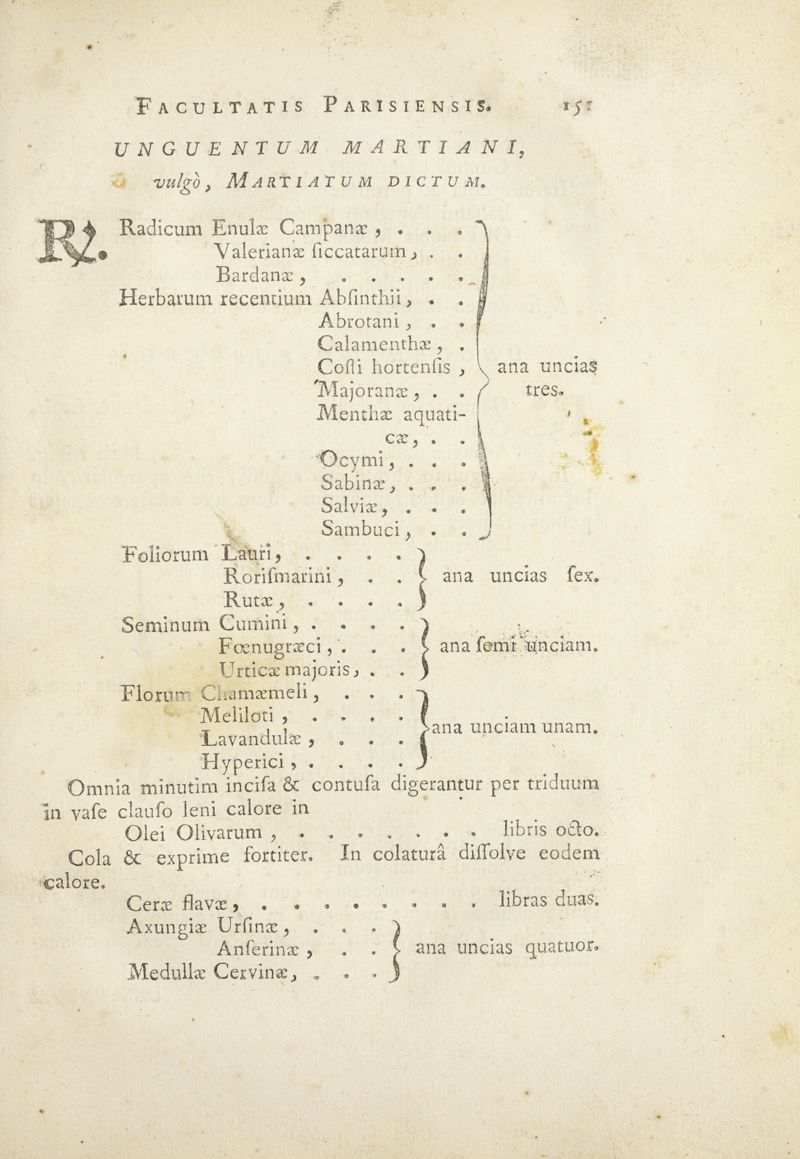 FACULTATIS PARISIENSIS. 151
UNGUENTUM MARTIANI,
vulgò, MARTIATUM DICTUM.
℞. Radicum Enulæ Campanæ, . . .
Valerianæ ſiccatarum, . .
Bardanæ, . . . . . .
Herbarum recentium Abſinthii, . .
Abrotani, . .
Calamenthæ, .
Coſti hortenſis, ana uncias
Majoranæ, . . tres.
Menthæ aquati-
cæ, . .
Ocymi, . . .
Sabinæ, . . .
Salviæ, . . .
Sambuci, . .
Foliorum Lauri, . . . .
Roriſmarini, . . ana uncias ſex.
Rutæ, . . . .
Seminum Cumini, . . . .
Fœnugræci, . . . ana ſemi unciam.
Urticæ majoris, . .
Florum Chamæmeli, . . .
Meliloti, . . . .
Lavandulæ, . . . ana unciam unam.
Hyperici, . . . .
Omnia minutim inciſa & contuſa digerantur per triduum
in vaſe clauſo leni calore in
Olei Olivarum, . . . . . . . libris octo.
Cola & exprime fortiter. In colaturâ diſſolve eodem
calore.
Ceræ flavæ, . . . . . . . . libras duas.
Axungiæ Urſinæ, . . .
Anſerinæ, . . ana uncias quatuor.
Medullæ Cervinæ, . . .